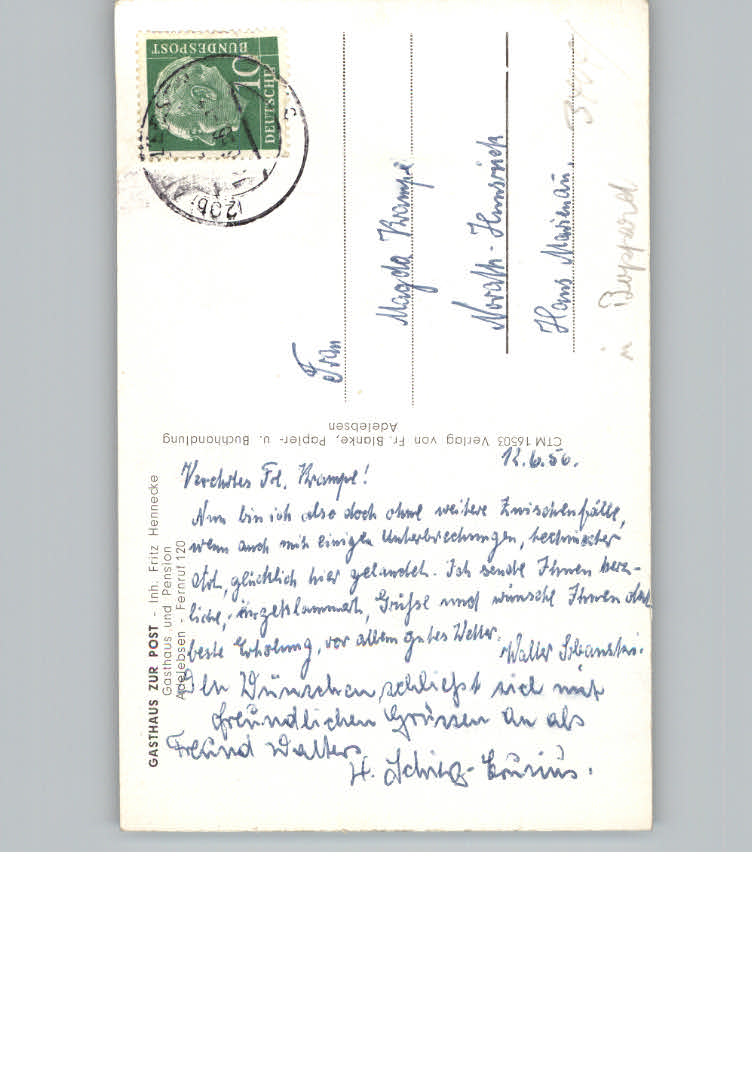 DEUTSCHE
BUNDESPOST
10
(20b)
Frau
Magda Krampe
Norath-Hunsrück
Haus Marienau.
in Boppard
CTM 16503 Verlag von Fr. Blanke, Papier- u. Buchhandlung
Adelebsen
GASTHAUS ZUR POST - Inh. Fritz Hennecke
Gasthaus und Pension
Adelebsen - Fernruf 120
12.6.56.
Verehrtes Frl. Krampe!
Nun bin ich also doch ohne weitere Zwischenfälle,
wenn auch mit einigen Unterbrechungen, technischer
Art, glücklich hier gelandet. Ich sende Ihnen herz-
liche, Grüße und wünsche Ihnen
beste Erholung, vor allem gutes Wetter.
Walter
Den Wünschen schließt sich mit
freundlichen Grüssen an als
Freund Walters
H.